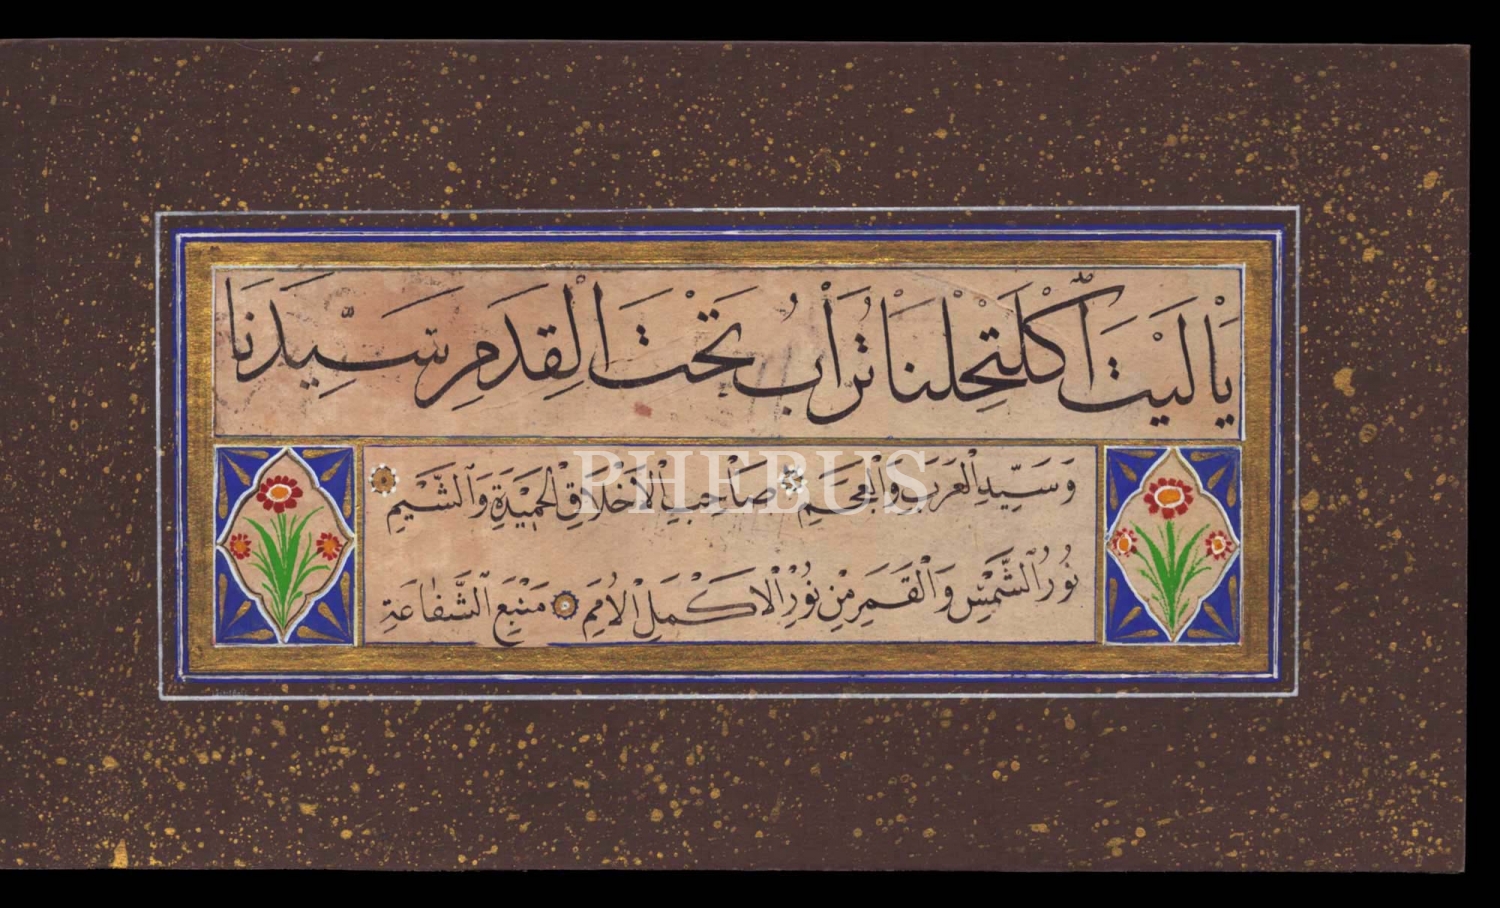 يَا لَيْتَ اكْتَحَلْنَا تُرَابُ تَحْتَ الْقِدَمِ سَيِّدَنَا
وَسَيِّدِ الْعَرَبِ وَالْعَجَمِ صَاحِبِ الْأَخْلَاقِ الْحَمِيْدَةِ وَالشِّيَمِ
نُورُ الشَّمْسِ وَالْقَمَرِ مِنْ نُورِ الْاَكْمَلِ الْاُمَمِ مَنْبَعِ الشَّفَاعَةِ
PHEBUS